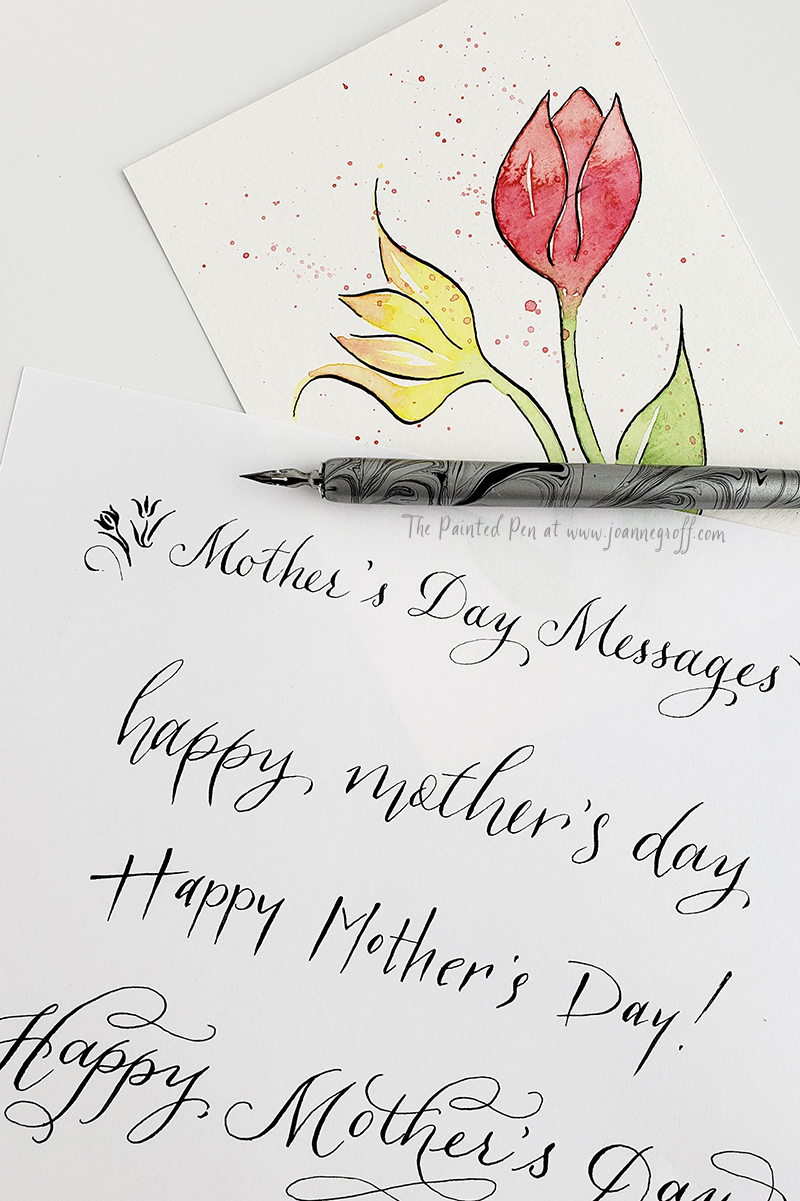 The Painted Pen at www.joannegroff.com
Mother's Day Messages
happy mother's day
Happy Mother's Day!
Happy Mother's Day